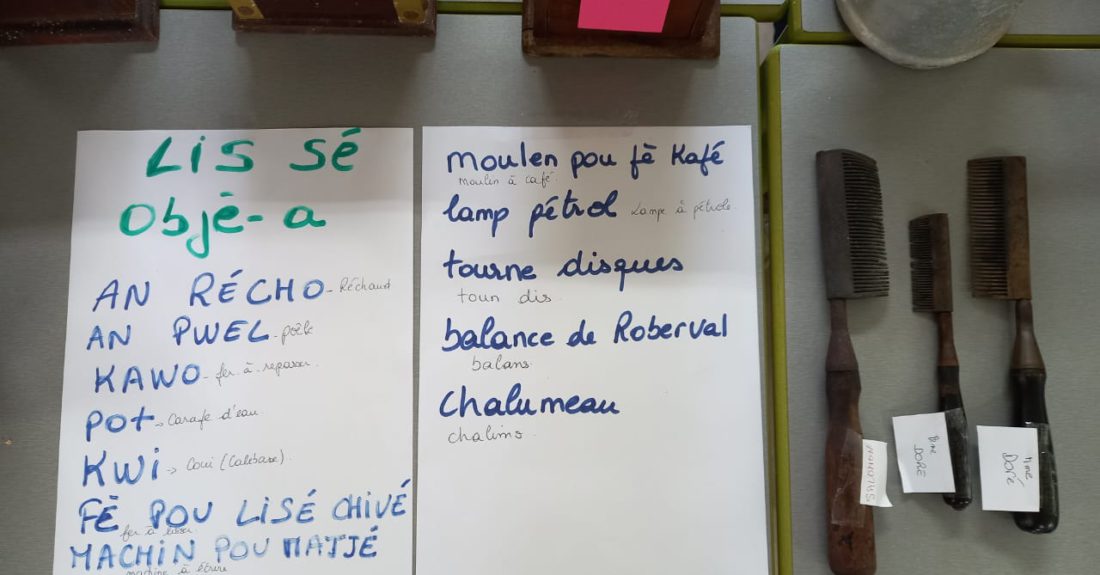 Lis sé
Objè-a
AN RÉCHO - Réchaud
AN PWEL - poêle
KAWO - fer à repasser
pot → Carafe d'eau
Kwi → Coui (Calebase)
FÈ POU LISÉ CHIVÉ
fer à lisser
MACHIN POU MATJÉ
machine à écrire
moulen pou fè Kafé
moulin à café
lamp pétrol Lampe à pétrole
tourne disques
toun dis
balance de Roberval
balans
Chalumeau
chalimo
Mme
DORÉ
Mme
DORÉ